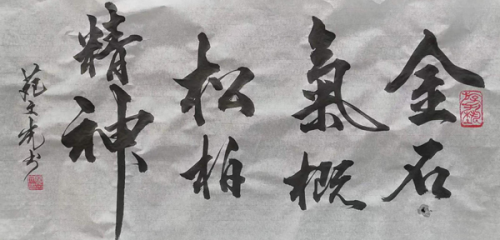 金石
氣概
松柏
精神
范士光书